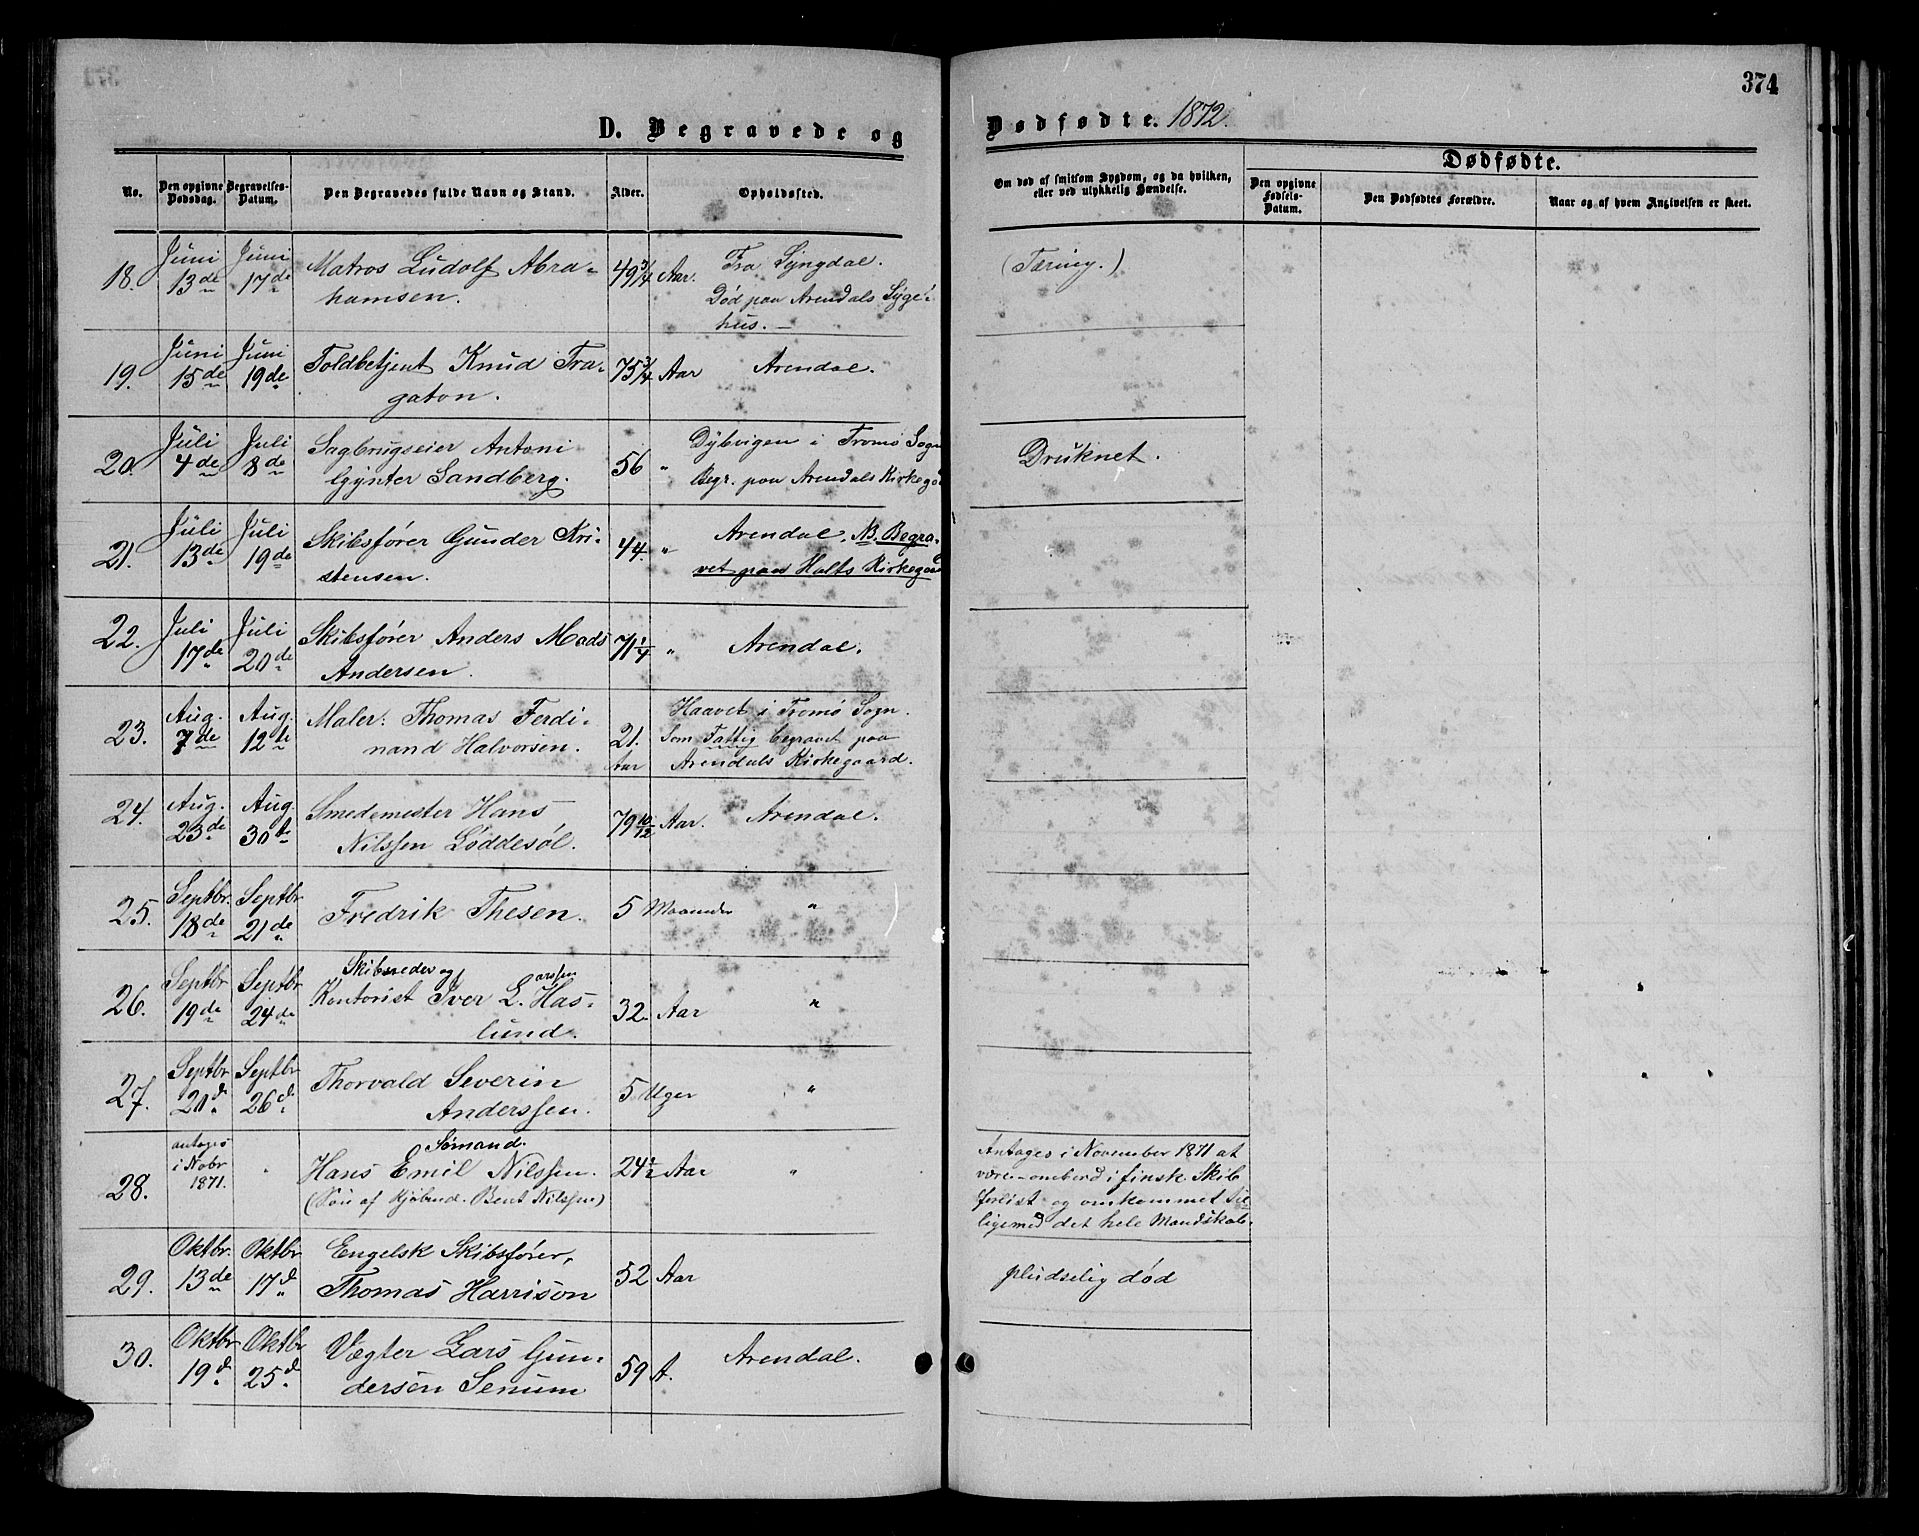 374
D. Begravede og Dødfødte. 1872.
No. Den opgivne Dødsdag. Begravelses-Datum. Den Begravedes fulde Navn og Stand. Alder. Opholdssted. Om død af smitsom Sygdom, og da hvilken, eller ved ulykkelig Hændelse. Dødfødte. Den opgivne Fødsels-Datum. Den Dødfødtes Forældre. Naar og af hvem Angivelsen er skeet.
18. Juni 13de Juni 17de Matros Ludolf Abra-
hamsen. 49 3/4 Aar. Fra Lyngdal.
Død paa Arendals Syge-
hus. — (Tæring.)
19. Juni 15de Juni 19de Toldbetjent Knud Tra-
gaton. 75 3/4 Aar Arendal.
20. Juli 4de Juli 8de Sagbrugseier Antoni
Gynter Sandberg. 56 " Dybvigen i Tromø Sogn
Begr. paa Arendals Kirkega Druknet.
21. Juli 13de Juli 19de Skibsfører Gunder Kri-
stensen. 44. " Arendal. NB. Begra-
vet paa Holts Kirkegaa
22. Juli 17de Juli 20de Skibsfører Anders Mads
Andersen. 71 1/4 " Arendal.
23. Aug. 7de Aug. 12te Maler: Thomas Ferdi-
nand Halvorsen. 21. Aar Haavet i Tromø Sogn.
Som Fattig begravet paa
Arendals Kirkegaard.
24. Aug. 23de Aug. 30te Smedemester Hans
Nilssen Løddesøl. 79 10/12 Aar. Arendal.
25. Septbr. 18de Septbr 21de Fredrik Thesen. 5 Maaneder "
26. Septbr 19de Septbr 24de Skibsreder og
Kontorist Iver L.arssen Has-
lund. 32. Aar "
27. Septbr 20d. Septbr 26d. Thorvald Severin
Anderssen. 5 Uger "
28. antages i Nobr 1871. " Sømand.
Hans Emil Nilssen.
(Søn af Kjøbmd. Bent Nilssen) 24 1/2 Aar " Antages i November 1871 at
være ombord i finsk Skib
forlist og omkommet til-
ligemed det hele Mandskab.
29. Oktbr. 13de Oktbr 17d. Engelsk Skibsfører,
Thomas Harrison 52 Aar pludselig død
30. Oktbr 19d. Oktbr 25d. Vægter Lars Gun-
dersen Senum 59 A. Arendal.